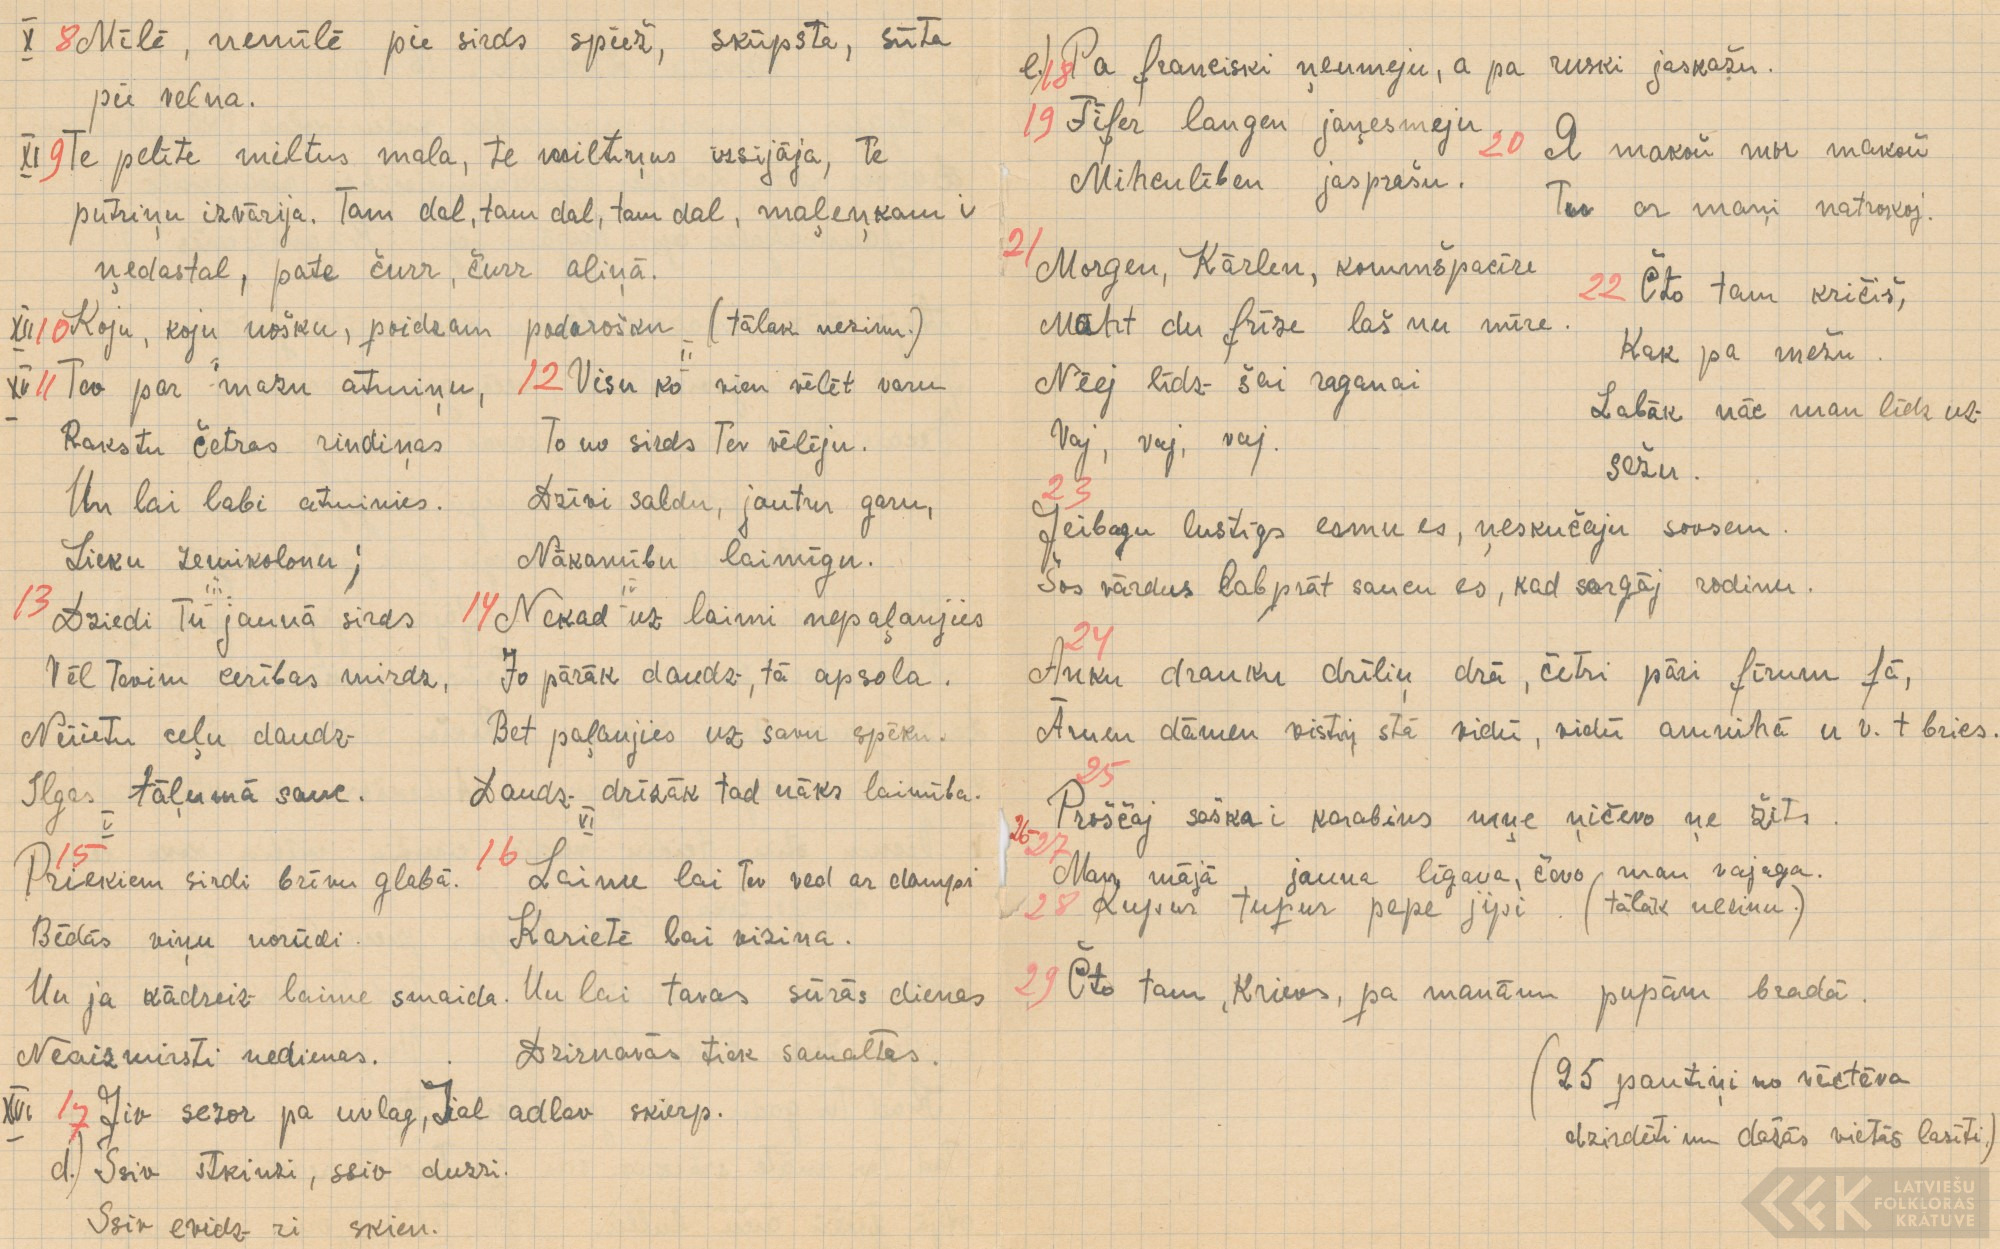 X 8 Mīlē, nemīlē pie sirds spiež, skūpsta, sūta
pie velna.
XI 9 Te pelīte miltus mala, te miltiņus izsijāja, te
putriņu izvārija. Tam dal, tam dal, tam dal, maļeņkam i
ņedastal, pate čurr, čurr aliņā.
XII 10 Koju, koju nošku, poidzam podorošku (tālāk nezinu.)
XV 11 Tev par mazu atmiņu,
Rakstu četras rindiņas
Un lai labi atminies.
Lieku zemikolonu;
II
12 Visu ko vien vēlēt varu
To no sirds Tev vēlēju.
Dzīvi saldu, jautru garu,
Nākamību laimīgu.
III
13 Dziedi Tu jaunā sirds
Vēl Tevim cerības mirdz,
Neiietu ceļu daudz
Ilgas tāļumā sauc.
IV
14 Nekad uz laimi nepaļaujies
Jo pārāk daudz, tā apsola.
Bet paļaujies uz savu spēku.
Daudz drīzāk tad nāks laimība.
V
15 Priekiem sirdi brīvu glabā.
Bēdās viņu norūdi.
Un ja kādreiz laime smaida.
Neaizmirsti nedienas.
VI
16 Laime lai Tev ved ar dampi
Karietē lai vizina.
Un lai tavas sūrās dienas
Dzirnavās tiek samaltas.
XVI 17 Jiv sezor pa uvlag, Jial adlav skierp.
d.) Ssiv stkinzi, ssiv duzzi.
Ssiv evidz ri skien.
e.) 18 Pa franciski ņeumeju, a pa ruski jaskažu.
19 Fīfer langen jaņesmeju
Mihenlīben jasprašu.
20 А такой мы такой
Tu ar maņi natroskoj.
21 Morgen, Kārlen, kommšpacīre
Maht du frīze laš nu mīre.
Nēej līdz šai raganai
Vaj, vaj, vaj.
22 Čto tam kričiš,
Kak pa mežu.
Labāk nāc man līdz uz
sežu.
23
Jeibagu lustīgs esmu es, ņeskučaju sovsem.
Šos vārdus labprāt saucu es, kad sargāj rodinu.
24
Anku dranku drīliņ drā, četri pāri fīrum fā,
Āmen dāmen vistiņ stā vidū, vidū ammihā u v. t bries.
25
Proščaj saška i karabins mņe ņičevo ņe žits.
26 27
Man mājā jauna līgava, čovo man vajaga.
28 Lupur tupur pepe jipi. (tālāk nezinu.)
29 Čto tam, Krievs, pa manām pupām bradā.
(25 pantiņi no vēctēva
dzirdēti un dažās vietās lasīti.)
LATVIEŠU
FOLKLORAS
KRĀTUVE